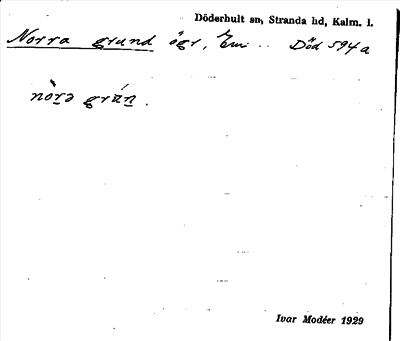 Döderhult sn, Stranda hd, Kalm. l.
Norra grund ögr, Em .. Död 594a
nòrə grún.
Ivar Modéer 1929